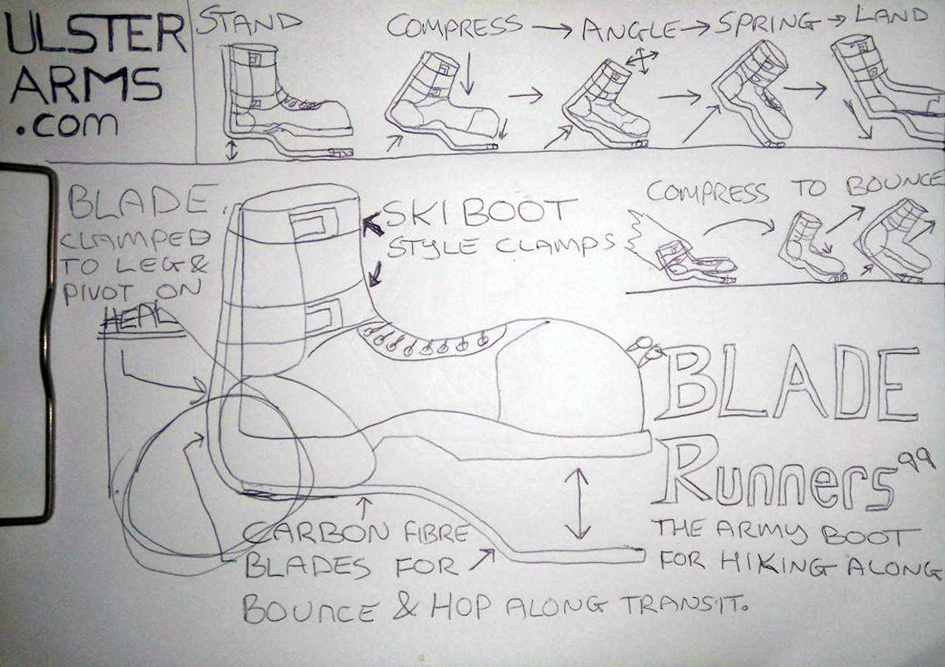 ULSTER
ARMS
.com
STAND
COMPRESS → ANGLE → SPRING → LAND
BLADE
CLAMPED
TO LEG &
PIVOT ON
HEAL
SKI BOOT
STYLE CLAMPS
COMPRESS TO BOUNCE
BLADE
Runners"
THE ARMY BOOT
FOR HIKING ALONG
CARBON FIBRE
BLADES FOR
BOUNCE & HOP ALONG TRANSIT.